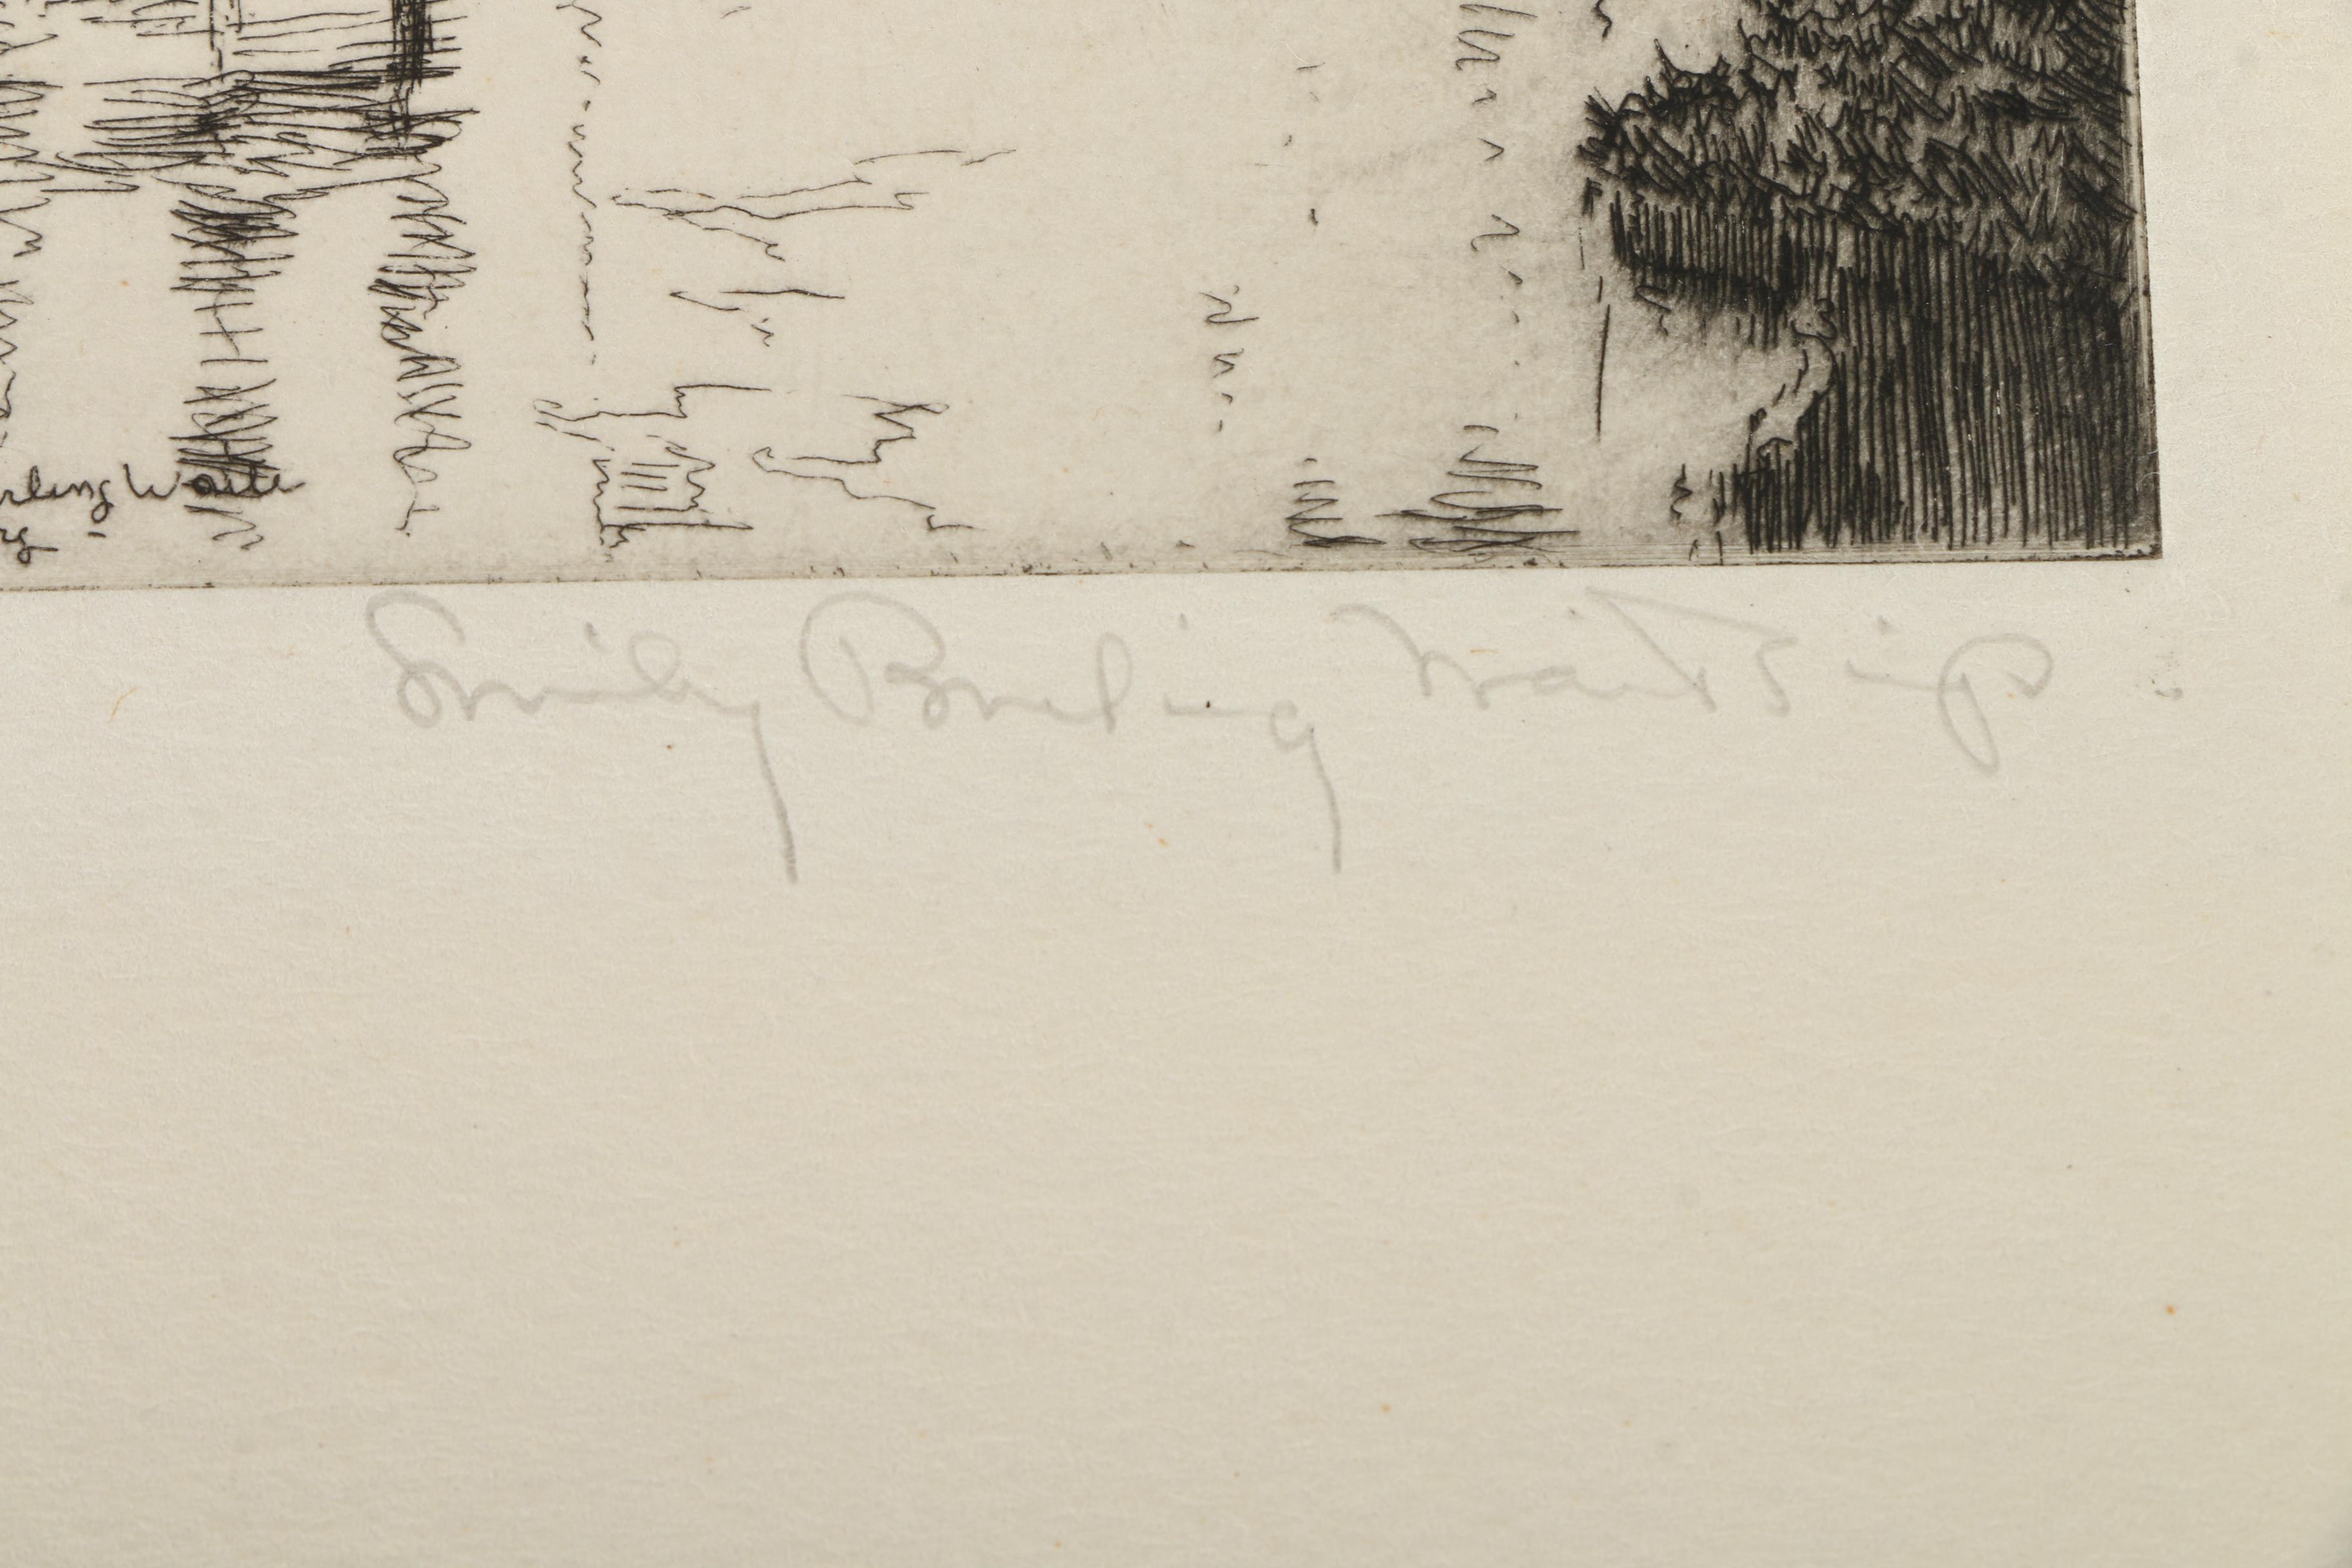 rling Waite
Emily Burling Waite imp